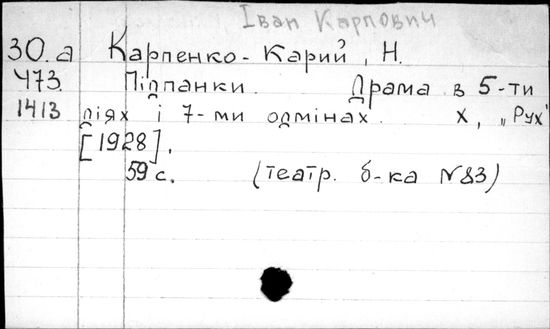 Іван Карпович
30.а Карпенко-Карий, Н.
473. Підпанки. Драма в 5-ти
1413 діях і 7-ми одмінах. Х, „Рух"
[1928].
59 с. (театр. б-ка №83)